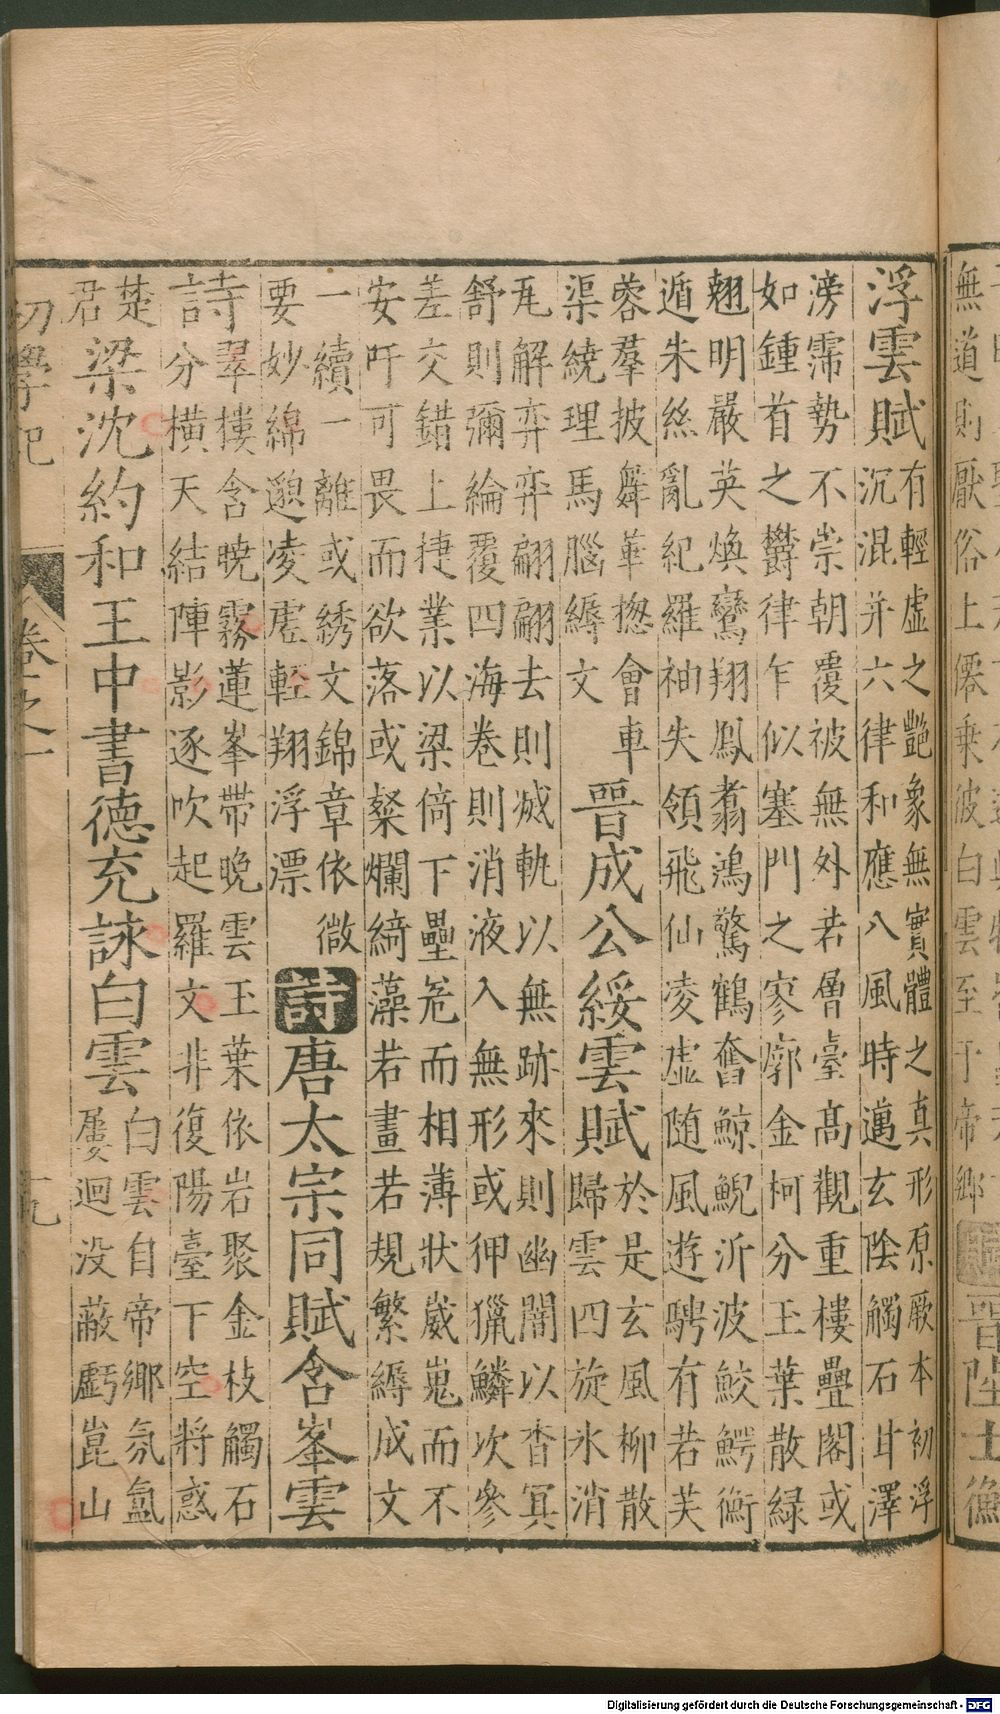 無道則厭俗上僊乗彼白雲至于帝鄉
晉陸士衡
浮雲賦
有輕虚之艶象無實體之真形原厥本初浮
沉混并六律和應八風時邁玄陰觸石甘澤
滂霈勢不崇朝覆被無外若層臺髙觀重樓疊閣或
如鍾首之欝律乍似塞門之寥廓金柯分玉葉散緑
翹明嚴英煥鸞翔鳳翥鴻驚鶴奮鯨鯢沂波鮫鰐衝
遁朱絲亂紀羅袖失領飛仙凌虚随風遊騁有若芙
蓉羣披舞華揔會車
渠繞理馬腦縟文
晉成公綏雲賦
於是玄風柳散
歸雲四旋氷消
瓦解弈弈翩翩去則滅軌以無跡來則幽闇以杳冥
舒則彌綸覆四海卷則消液入無形或狎獵鱗次參
差交錯上捷業以梁倚下壘危而相薄狀崴嵬而不
安吁可畏而欲落或粲爛綺藻若畫若規繁縟成文
一續一離或綉文錦章依微
要妙綿邈凌虚輕翔浮漂
詩
唐太宗同賦含峯雲
詩
翠樓含曉霧蓮峯帶晚雲玉葉依岩聚金枝觸石
分横天結陣影逐吹起羅文非復陽臺下空將惑
楚
君
梁沈約和王中書德充詠白雲
白雲自帝鄉氛氳
屢迴没蔽虧崑山
初學記
卷之一
十九
Digitalisierung gefördert durch die Deutsche Forschungsgemeinschaft - DFG